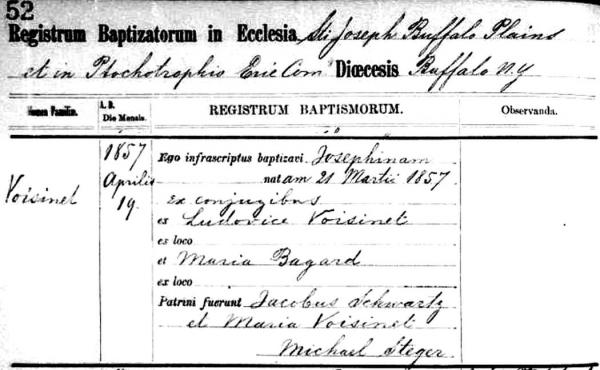 52
Registrum Baptizatorum in Ecclesia Sti Joseph Buffalo Plains
et in Ptochotrophio Erie Com Diœcesis Buffalo N.Y
Nomen Familiæ. A. D. Die Mensis. REGISTRUM BAPTISMORUM. Observanda.
1857 Ego infrascriptus baptizavi Josephinam
Aprilis natam 21 Martii 1857
Voisinet 19. Ex conjugibus
ex Ludovice Voisinet
ex loco
et Maria Bagard
ex loco
Patrini fuerunt Jacobus Schwartz
et Maria Voisinet
Michael Steger